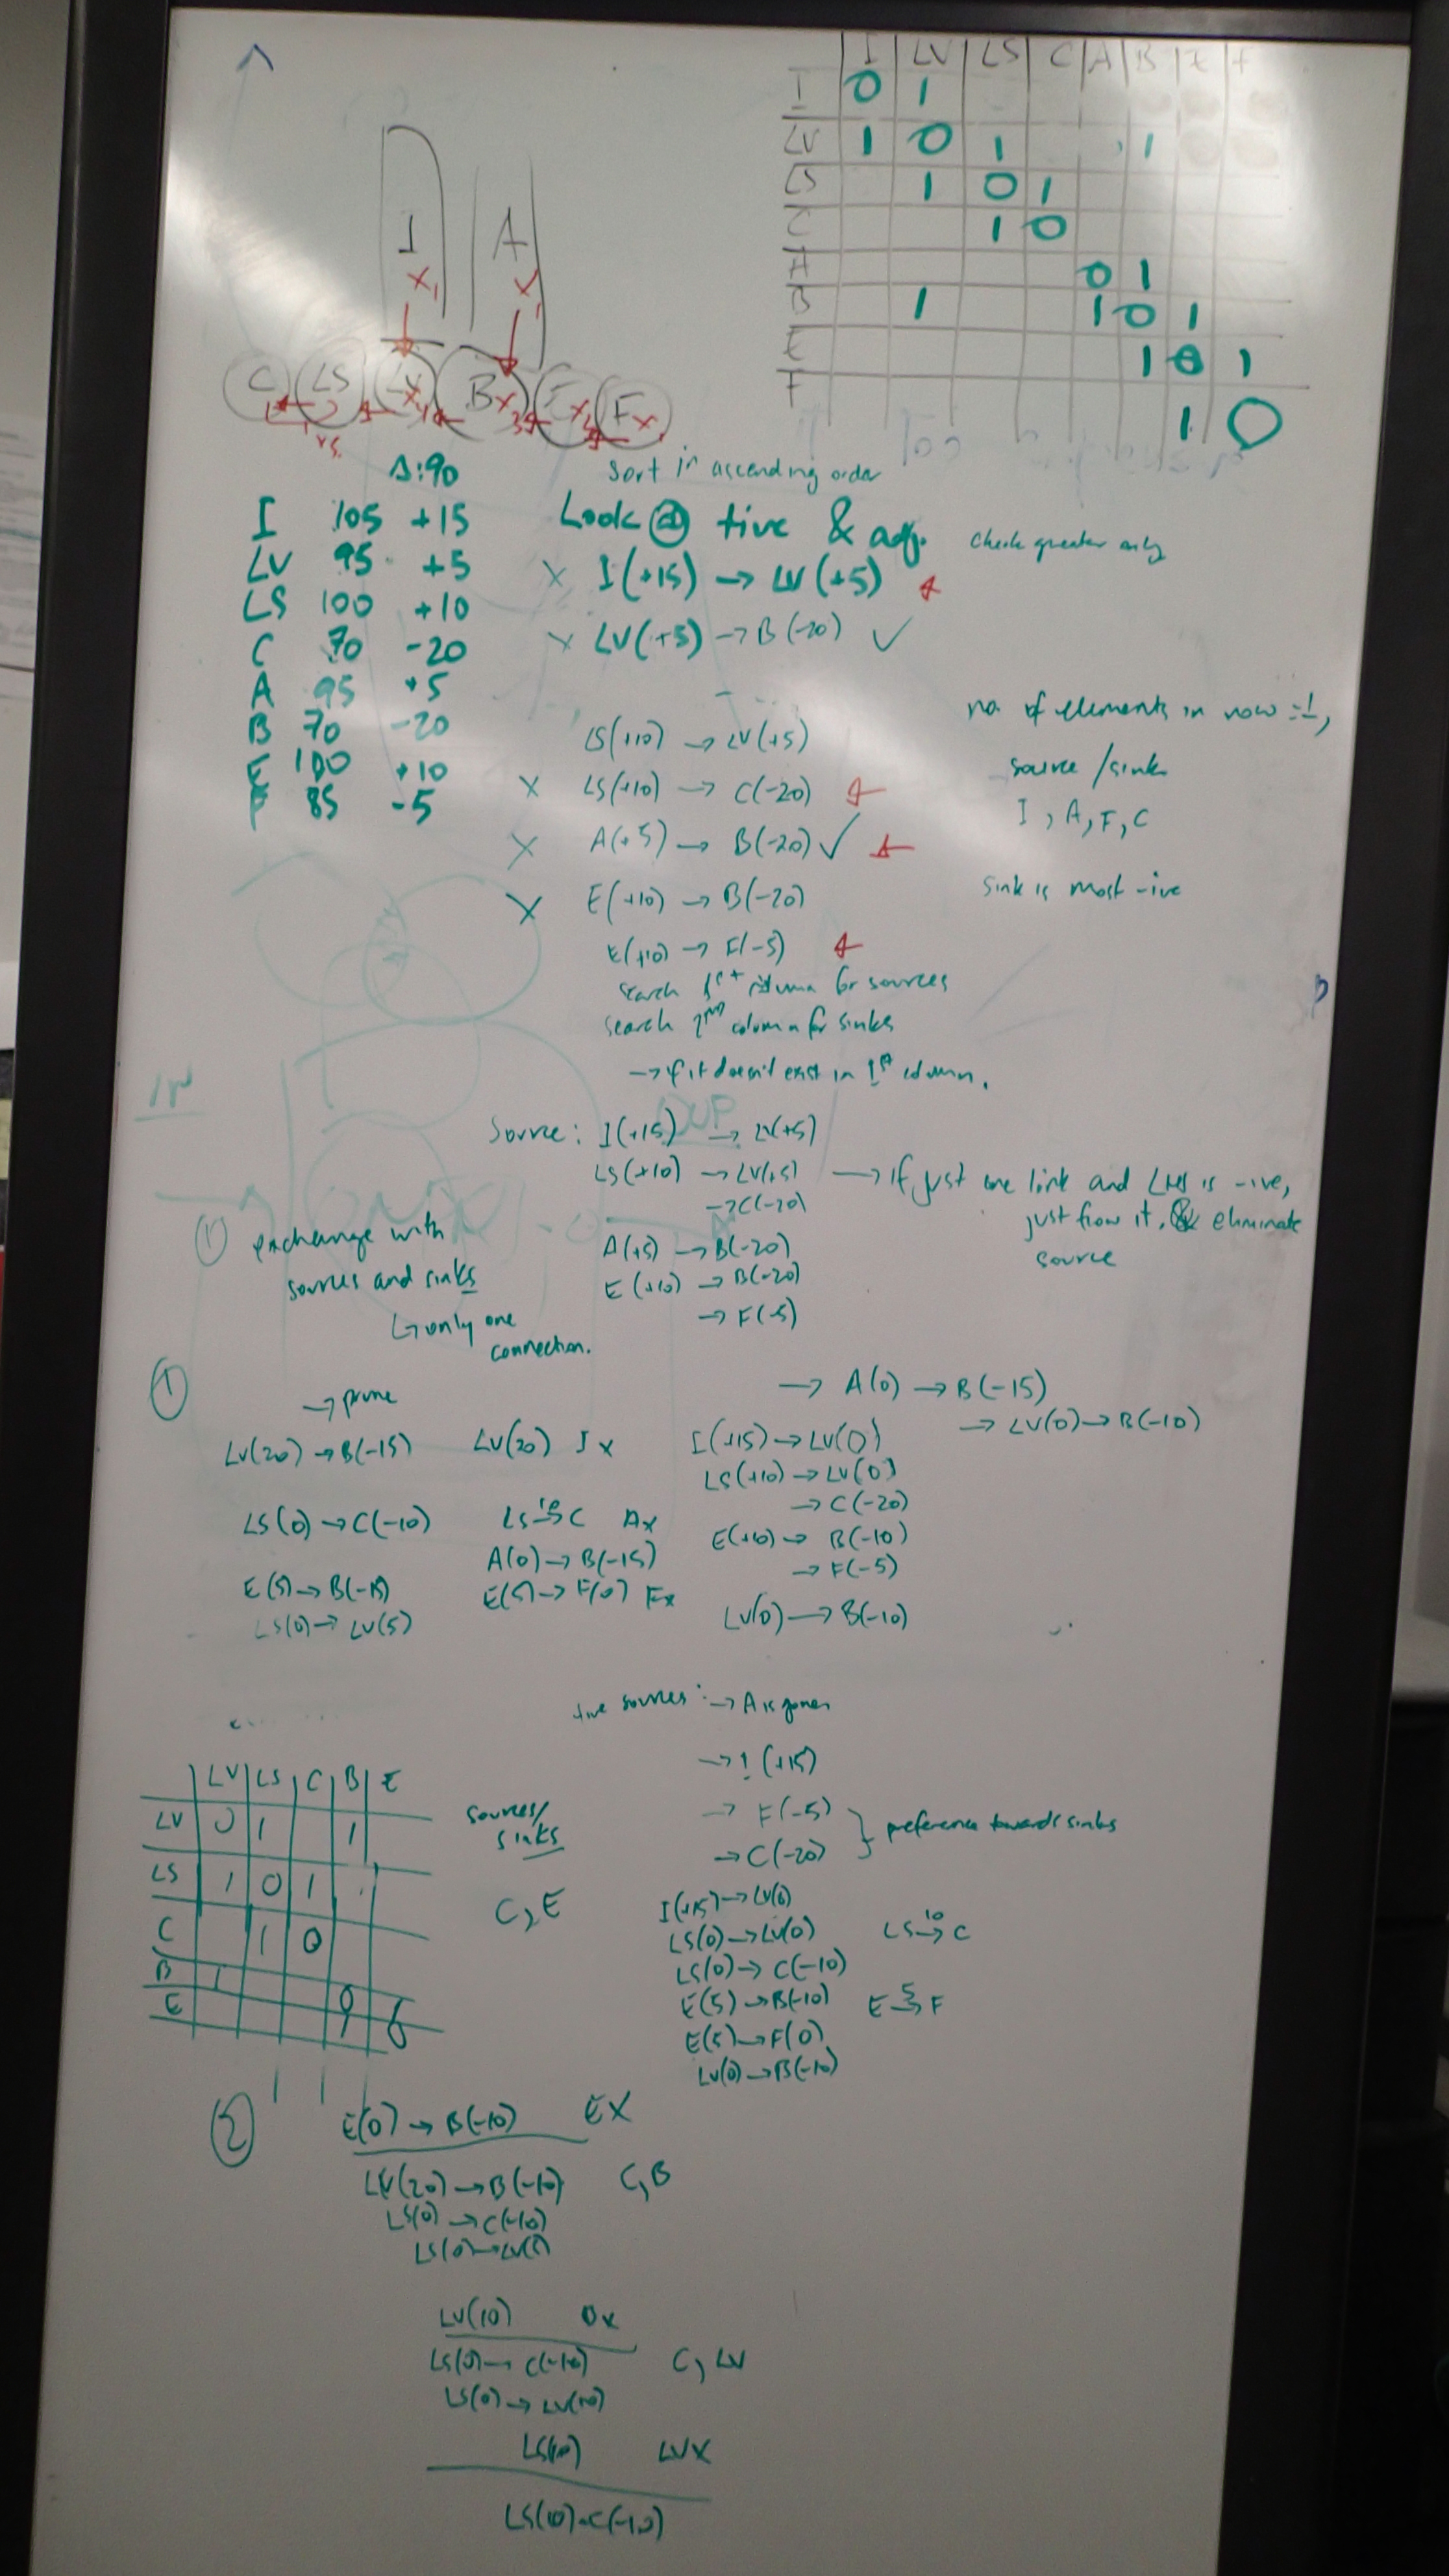 I LV LS C A B E F
I 0 1
LV 1 0 1 1
LS 1 0 1
C 1 0
A 0 1
B 1 1 0 1
E 1 0 1
F 1 0
I A
C LS LV B E F
Δ:90
I 105 +15
LV 95 +5
LS 100 +10
C 70 -20
A 95 +5
B 70 -20
E 100 +10
F 85 -5
sort in ascending order
Look @ tive & adj. check greater only
x I(+15) → LV(+5)
x LV(+5) → B(-20) ✓
LS(+10) → LV(+5)
x LS(+10) → C(-20)
x A(+5) → B(-20) ✓
x E(+10) → B(-20)
E(+10) → F(-5)
search 1st column for sources
search 2nd column for sinks
→ if it doesn't exist in 1st column.
no. of elements in row = 1,
source/sink
I, A, F, C
sink is most -ive
Source: I(+15) → LV(+5)
LS(+10) → LV(+5)
→ C(-20)
A(+5) → B(-20)
E(+10) → B(-20)
→ F(-5)
→ If just one link and LHS is -ive,
just flow it, & eliminate
source
① exchange with
sources and sinks
↳ only one
connection.
①
→ prune
LV(20) → B(-15)
LS(0) → C(-10)
E(5) → B(-15)
LS(0) → LV(5)
LV(20) I x
LS 10→ C A x
A(0) → B(-15)
E(5) → F(0) F x
→ A(0) → B(-15)
→ LV(0) → B(-10)
I(+15) → LV(0)
LS(+10) → LV(0)
→ C(-20)
E(+10) → B(-10)
→ F(-5)
LV(0) → B(-10)
tive sources: → A is gone
→ I(+15)
→ F(-5)
→ C(-20)
} preference towards sinks
I(+15) → LV(0)
LS(0) → LV(0) LS 10→ C
LS(0) → C(-10)
E(5) → B(-10) E 5→ F
E(5) → F(0)
LV(0) → B(-10)
LV LS C B E
LV 0 1 1
LS 1 0 1
C 1 0
B 1 0
E 1 0
sources/
sinks
C, E
②
E(0) → B(-10) E X
LV(20) → B(-10) C, B
LS(0) → C(-10)
LS(0)
LV(10)
LS(0) → C(-10) C, LV
LS(0) → LV(10)
LS(10) LV X
LS(10) → C(-10)